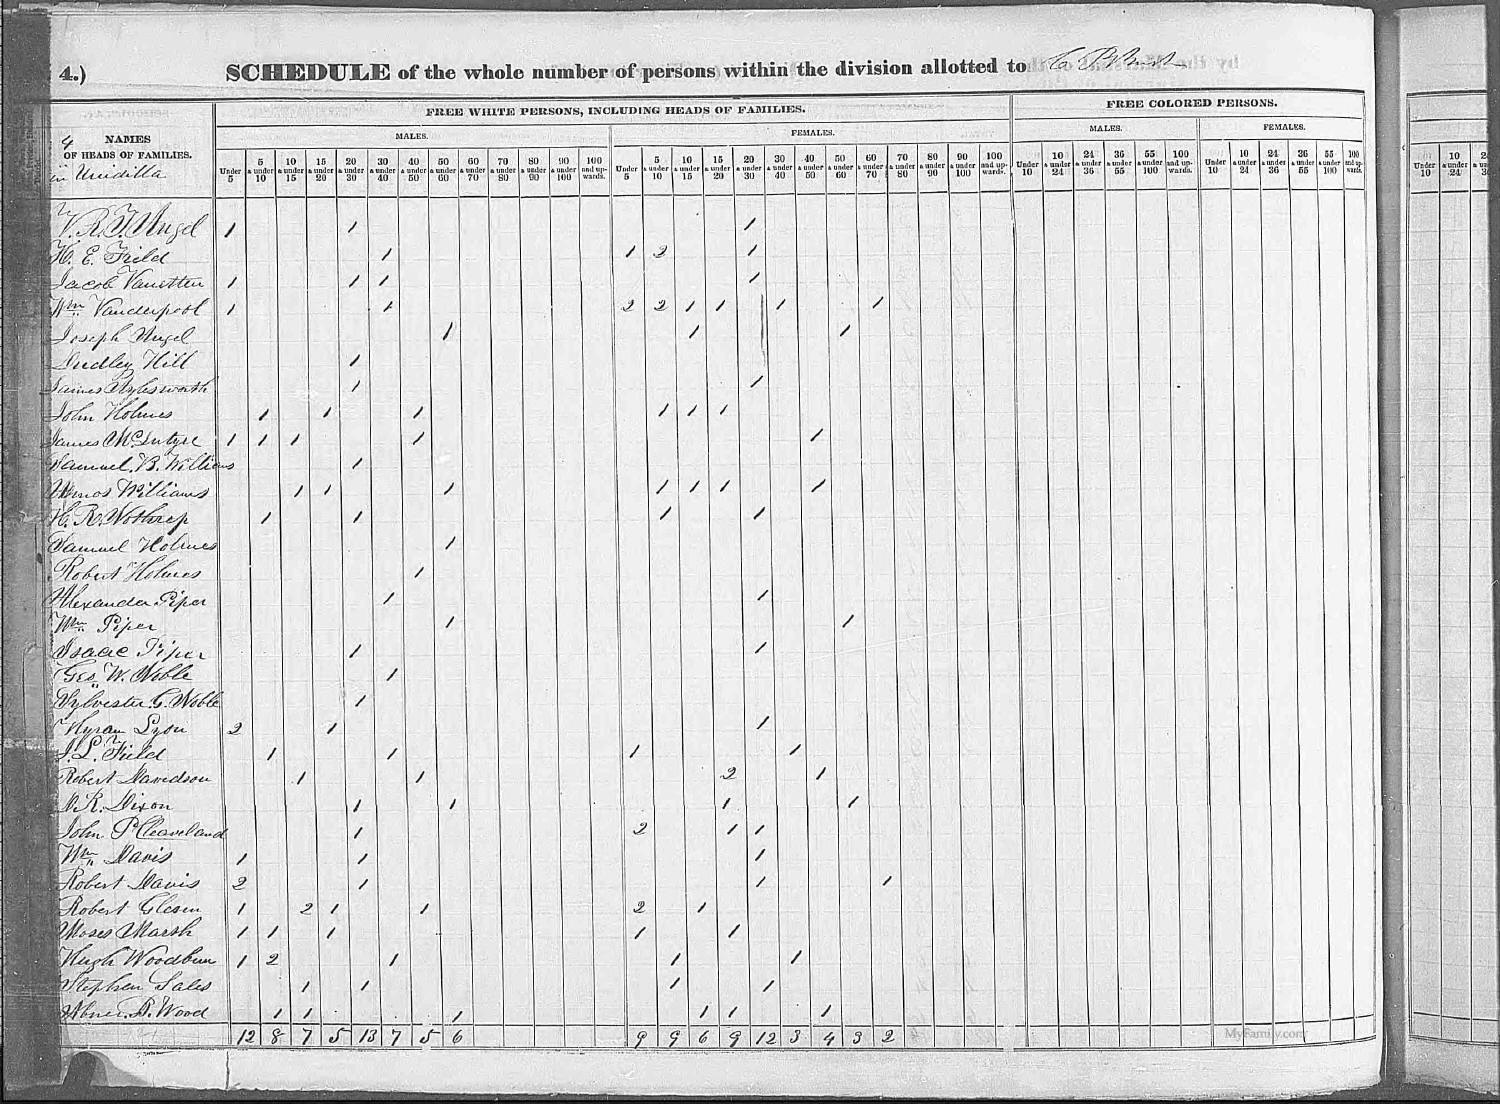 4.) SCHEDULE of the whole number of persons within the division allotted to
FREE WHITE PERSONS, INCLUDING HEADS OF FAMILIES. FREE COLORED PERSONS.
MALES. FEMALES. MALES. FEMALES.
4 NAMES
OF HEADS OF FAMILIES.
in Unidilla
Under 5 5 & under 10 10 & under 15 15 & under 20 20 & under 30 30 & under 40 40 & under 50 50 & under 60 60 & under 70 70 & under 80 80 & under 90 90 & under 100 100 and up-wards. Under 5 5 & under 10 10 & under 15 15 & under 20 20 & under 30 30 & under 40 40 & under 50 50 & under 60 60 & under 70 70 & under 80 80 & under 90 90 & under 100 100 and up-wards. Under 10 10 & under 24 24 & under 36 36 & under 55 55 & under 100 100 and up-wards. Under 10 10 & under 24 24 & under 36 36 & under 55 55 & under 100 100 and up-wards. Under 10 10 & under 24
V. R. T. Angel 1 1 1
H. E. Field 1 1 2 1
Jacob Vanetten 1 1 1 1
Wm Vanderpool 1 1 2 2 1 1 1 1
Joseph Angel 1 1 1
Dudley Hill 1
James Aylesworth 1 1
John Holmes 1 1 1 1 1 1
James McIntyre 1 1 1 1 1
Samuel B. Williams 1
Amos Williams 1 1 1 1 1 1 1
H. R. 1 1 1 1
Samuel Holmes 1
Robert Holmes 1
Alexander Piper 1 1
Wm Piper 1 1
Isaac Piper 1 1
Geo. W. Noble 1
Sylvester G. Noble 1
Hyram Lyon 2 1 1
J. L. Field 1 1 1 1
Robert Davidson 1 1 2 1
D. R. Dixon 1 1 1 1
John P Cleaveland 1 2 1 1
Wm Davis 1 1 1
Robert Davis 2 1 1 1
Robert Gleson 1 2 1 1 2 1
Moses Marsh 1 1 1 1 1
Hugh Woodburn 1 2 1 1 1
Stephen Sales 1 1 1 1
Abner A. Wood 1 1 1 1 1 1
12 8 7 5 13 7 5 6 9 9 6 9 12 3 4 3 2
MyFamily.com